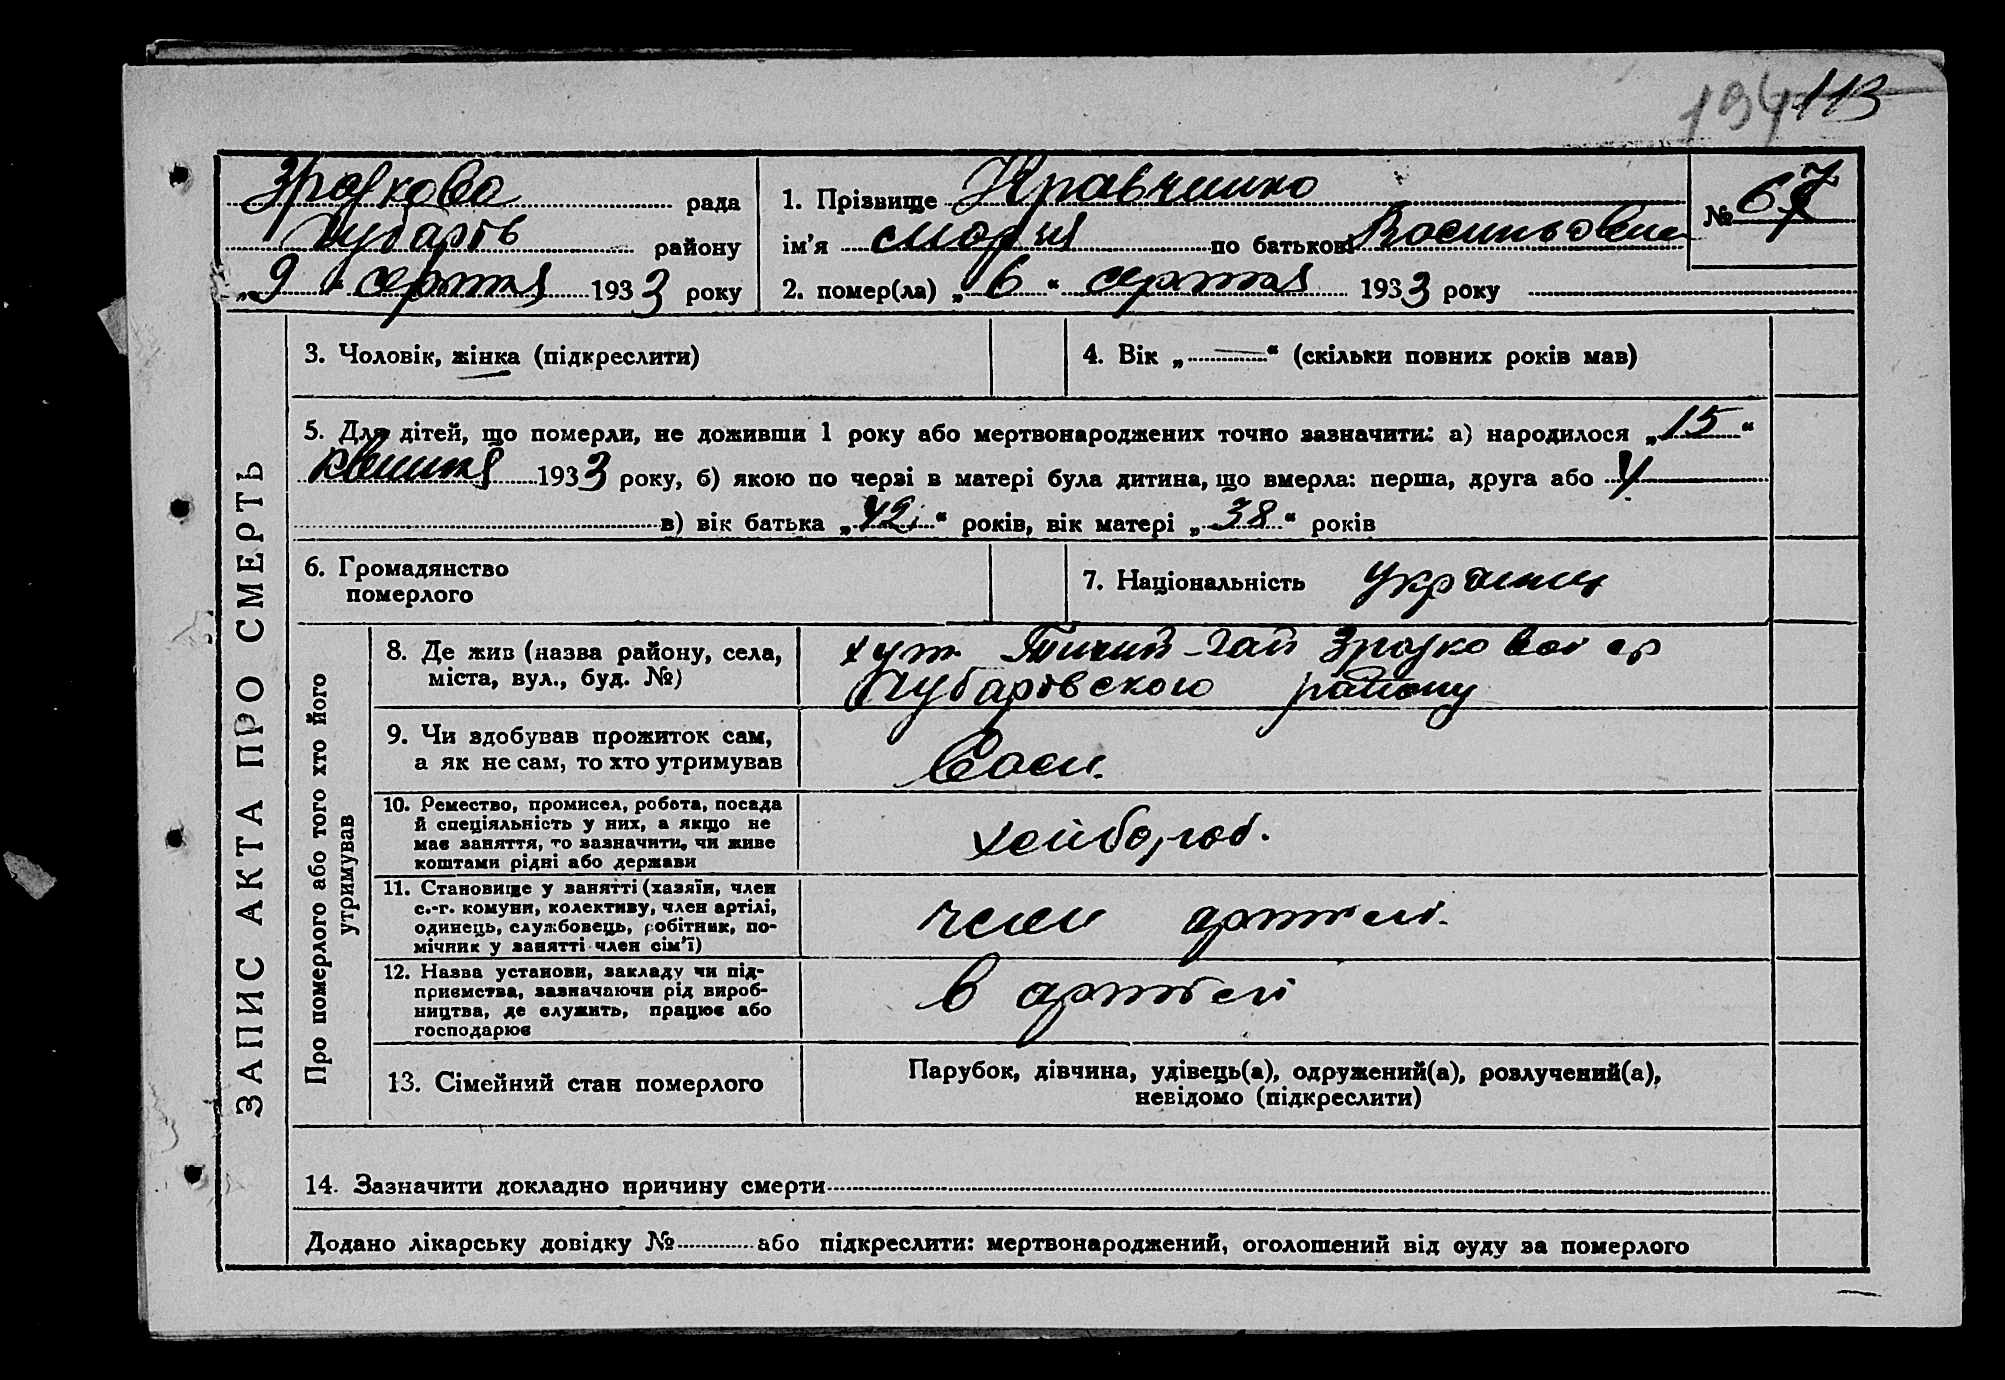 194 113
Зразкова рада
Чубарів району
„9“ серпня 1933 року
1. Прізвище Кравченко
ім’я Марія по батькові Васильовна
№ 67
2. помер(ла) „6“ серпня 1933 року
3. Чоловік, жінка (підкреслити)
4. Вік „—“ (скільки повних років мав)
5. Для дітей, що померли, не доживши 1 року або мертвонароджених точно зазначити: а) народилося „15“
квітня 1933 року, б) якою по черзі в матері була дитина, що вмерла: перша, друга або 4
в) вік батька „42“ років, вік матері „38“ років
6. Громадянство
померлого
7. Національність україн
ЗАПИС АКТА ПРО СМЕРТЬ
Про померлого або того хто його
утримував
8. Де жив (назва району, села,
міста, вул., буд. №)
хут. Тихий-Гай
Чубарівского району
9. Чи здобував прожиток сам,
а як не сам, то хто утримував
10. Ремество, промисел, робота, посада
й спеціяльність у них, а якщо не
має заняття, то зазначити, чи живе
коштами рідні або держави
хлібороб.
11. Становище у занятті (хазяїн, член
с.-г. комуни, колективу, член артілі,
одинець, службовець, робітник, по-
мічник у занятті член сім’ї)
член артілі.
12. Назва установи, закладу чи під-
приємства, зазначаючи рід вироб-
ництва, де служить, працює або
господарює
в артілі
13. Сімейний стан померлого
Парубок, дівчина, удівець(а), одружений(а), розлучений(а),
невідомо (підкреслити)
14. Зазначити докладно причину смерти
Додано лікарську довідку № або підкреслити: мертвонароджений, оголошений від суду за померлого